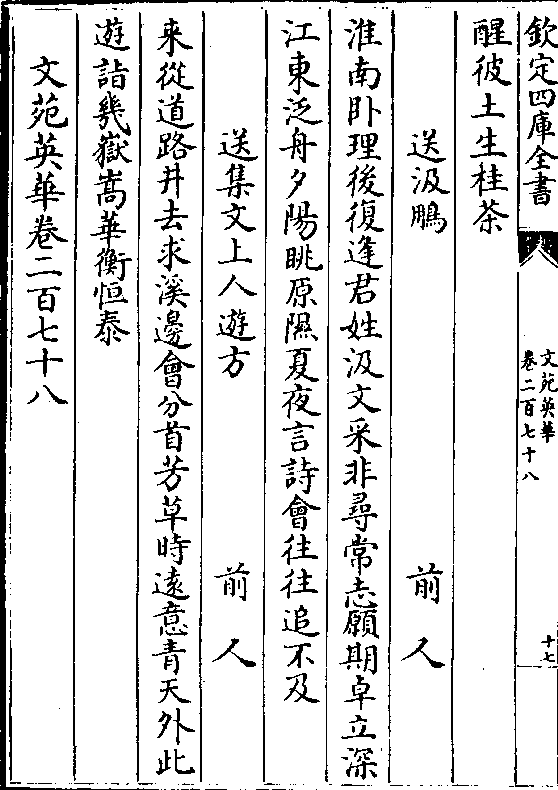 欽定四庫全書
文苑英華
卷二百七十八
十七
醒彼土生桂茶
送汲鵬 前人
淮南卧理後復逢君姓汲文采非尋常志願期卓立深
江東泛舟夕陽眺原隰夏夜言詩會往往追不及
送集文上人遊方 前人
来從道路井去求溪邊會分首芳草時遠意青天外此
遊詣幾嶽嵩華衡恒泰
文苑英華卷二百七十八